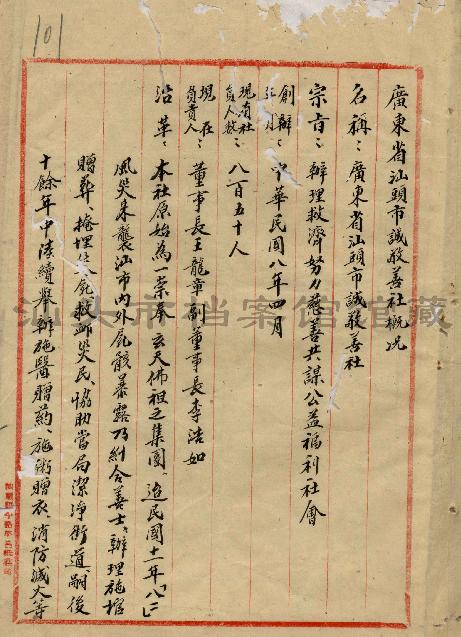 101
廣東省汕頭市誠敬善社概况
名稱：廣東省汕頭市誠敬善社
宗旨：辦理救濟努力慈善共謀公益福利社會
創辦年月：中華民國八年四月
現有社員人數：八百五十人
現在負責人：董事長王龍章副董事長李浩如
沿革：本社原始為一崇奉玄天佛祖之集團、迨民國十一年八、二
風災來襲汕市內外屍骸暴露乃糾合善士、辦理施棺
贈葬、掩埋 屍救卹災民、協助當局潔淨街道、嗣後
十餘年中陸續舉辦施醫贈药、施粥贈衣、消防滅火等
汕头市档案馆馆藏